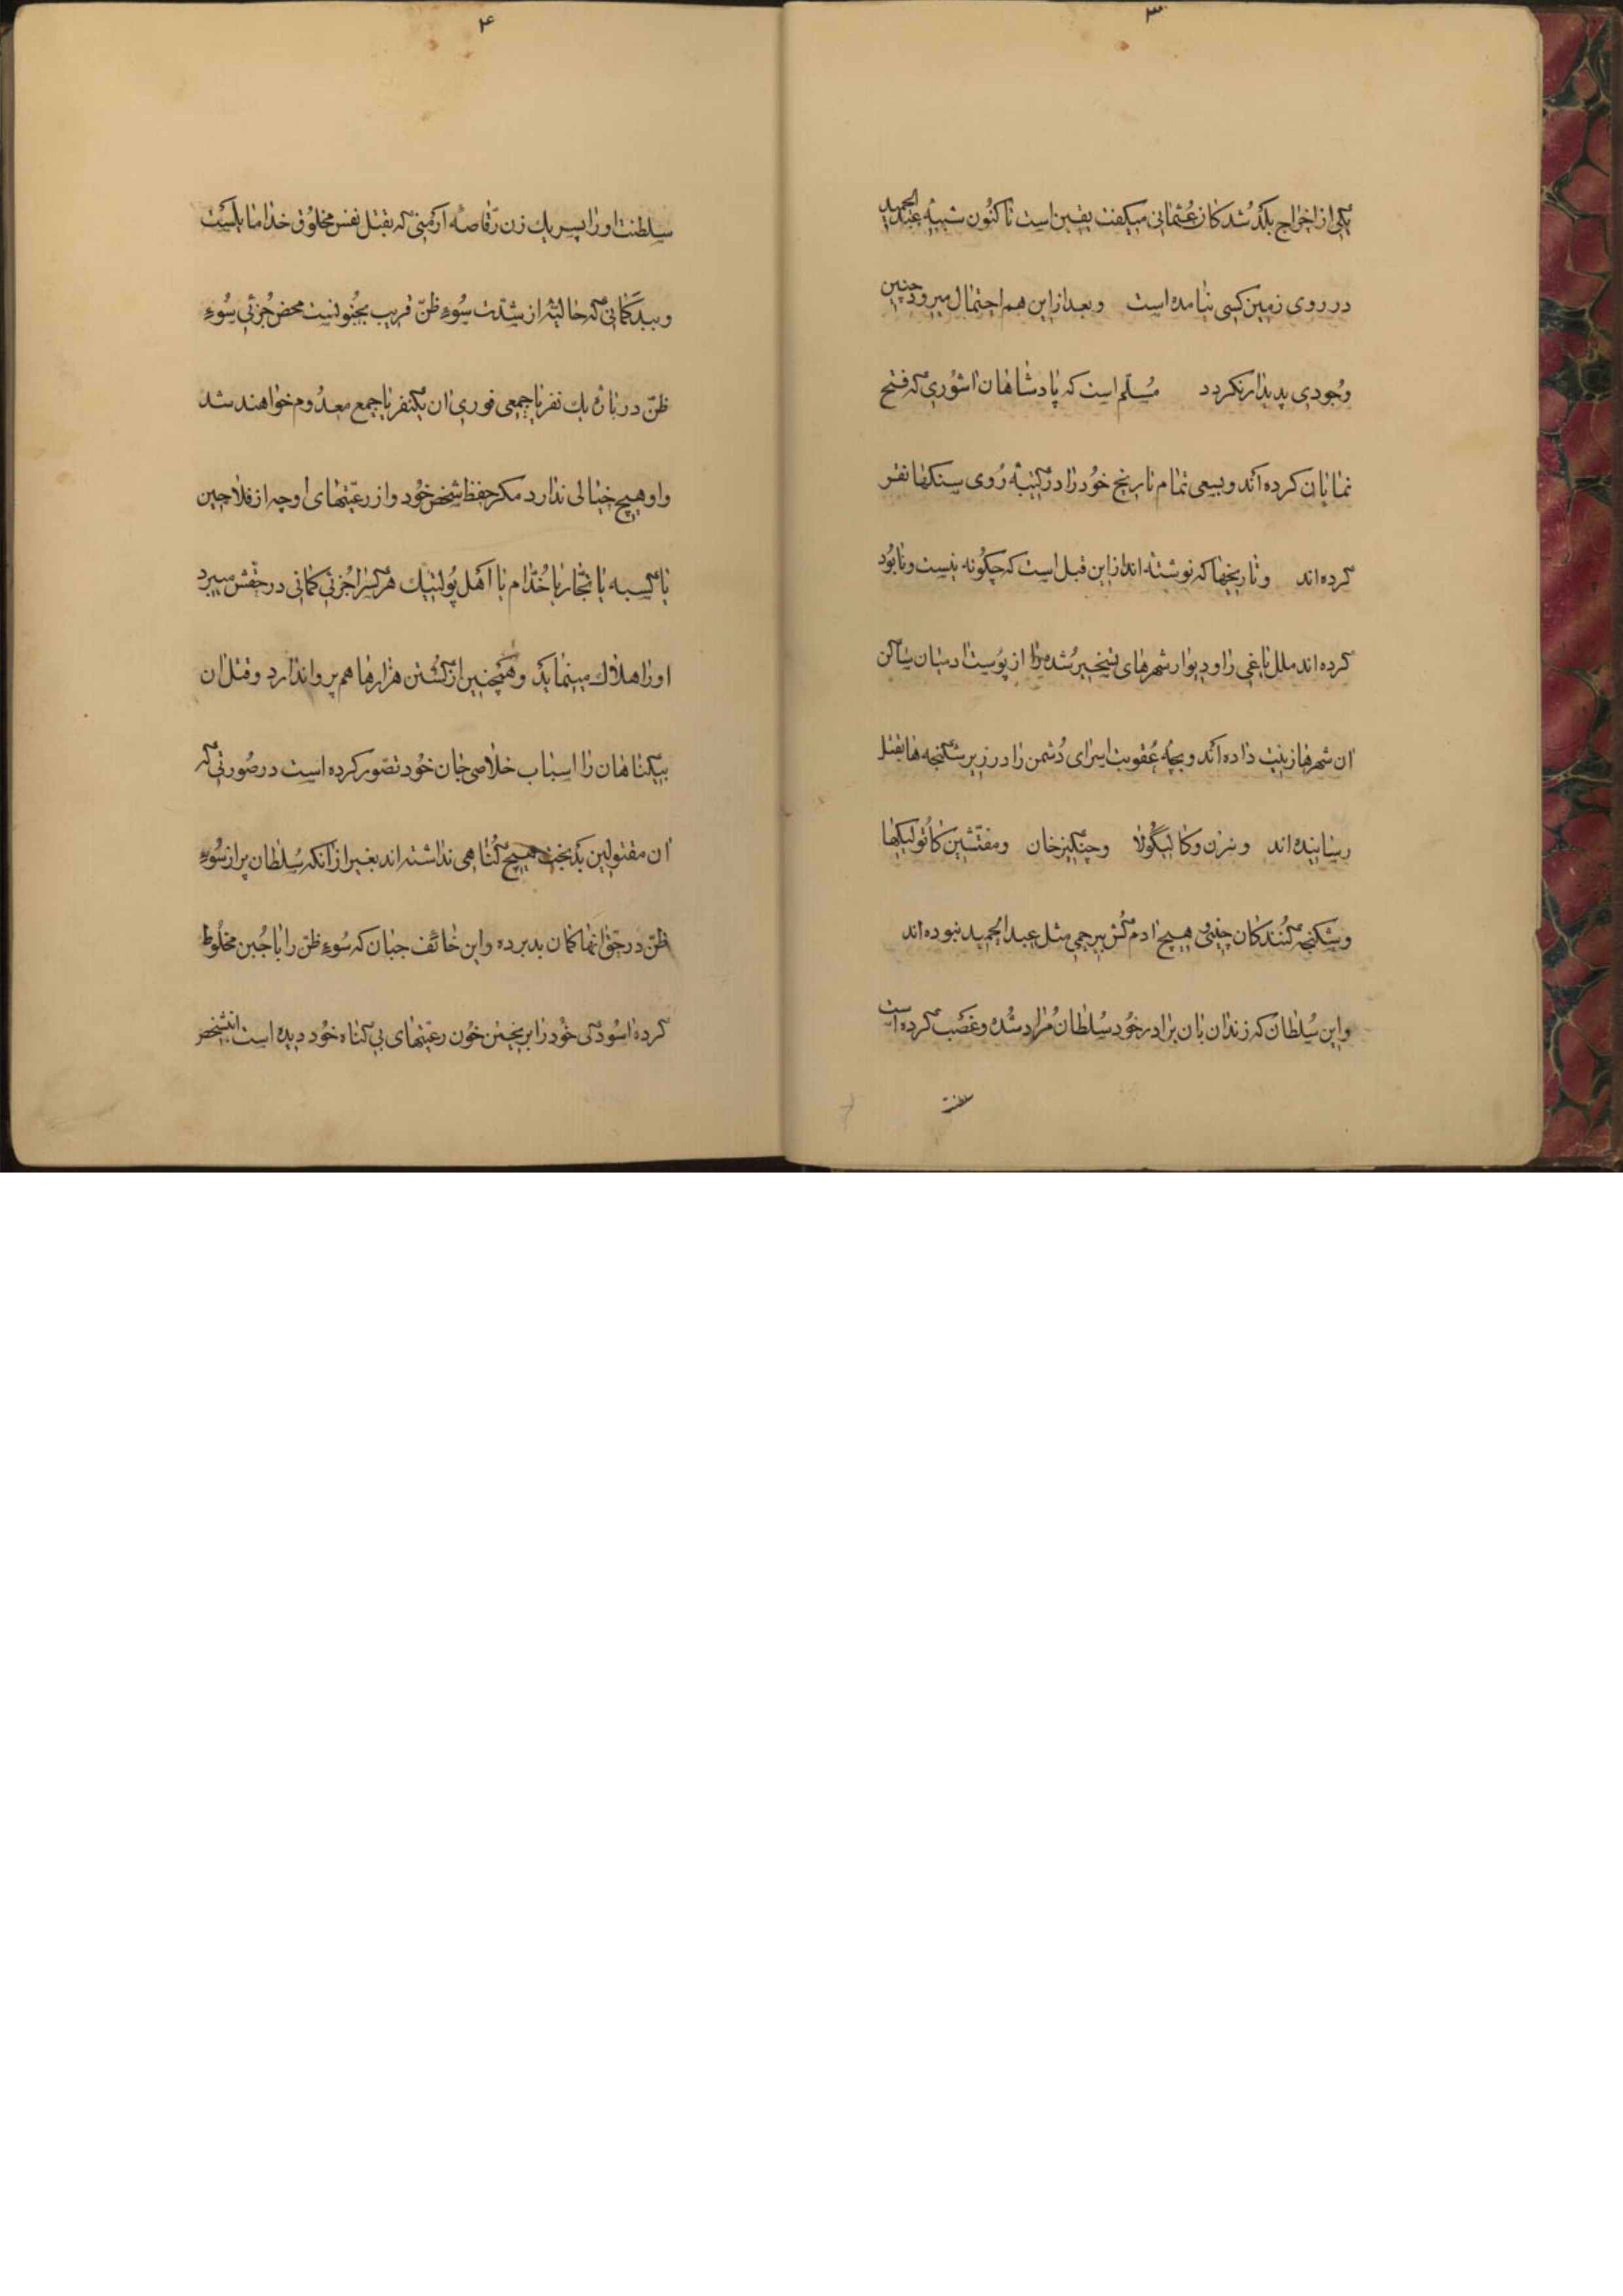 ۳
یکی از اخراج بلد شدکان عثمانی میکفت یقین است تا کنون شبیه عبد الحمید
در روی زمین کسی نیامده است و بعد از این هم احتمال میرود چنین
وجودی پدیدار نکردد مسلم است که پادشاهان اشوری که فتح
نمایان کرده اند و سبعی تمام تاریخ خود را در کتیبه روی سنکها نقر
کرده اند و تاریخها که نوشته اند از این قبل است که چکونه نیست و نابود
کرده اند ملل یاغی را و دیوار شهرهای تسخیر شده را از پوست ادمیان ساکن
ان شهرها زینت داده اند و بچه عقوبت اسرای دشمن را در زیر شکنجه ها بقتل
رسانیده اند و نرن و کالیگولا و چنکیز خان و مفتشین کاتولیکها
و شکنجه کنندکان چینی هیچ ادم کش بیرحمی مثل عبد الحمید نبوده اند
و این سلطان که زندان بان برادر خود سلطان مراد شده و غصب کرده است
سلطنت
۴
سلطنت او را پسر یک زن رقاصه ارمنی که بقتل نفس مخلوق خدا مایلست
و ببدکمانی که حالیه از شدت سوء ظن قریب بجنونست محض جزئی سوء
ظن در باره یک نفر یا جمعی فوری ان یکنفر یا جمع معدوم خواهند شد
و او هیچ خیالی ندارد مکر حفظ شخص خود و از رعیتهای او چه از فلاحین
یا کسبه یا تجار یا خدام یا اهل پولتیک هر کسرا جزئی کمانی در حقش میبرد
او را هلاک مینماید و همچنین از کشتن هزارها هم پروا ندارد و قتل ان
بیکناهان را اسباب خلاصی جان خود تصور کرده است در صورتی که
ان مقتولین بدبخت هیچ کناهی نداشته اند بغیر از آنکه سلطان پر از سوء
ظن در حق انها کمان بد برده و این خائف جبان که سوء ظن را با جبن مخلوط
کرده اسودکی خود را بریختن خون رعیتهای بی کناه خود دیده است اینشخص